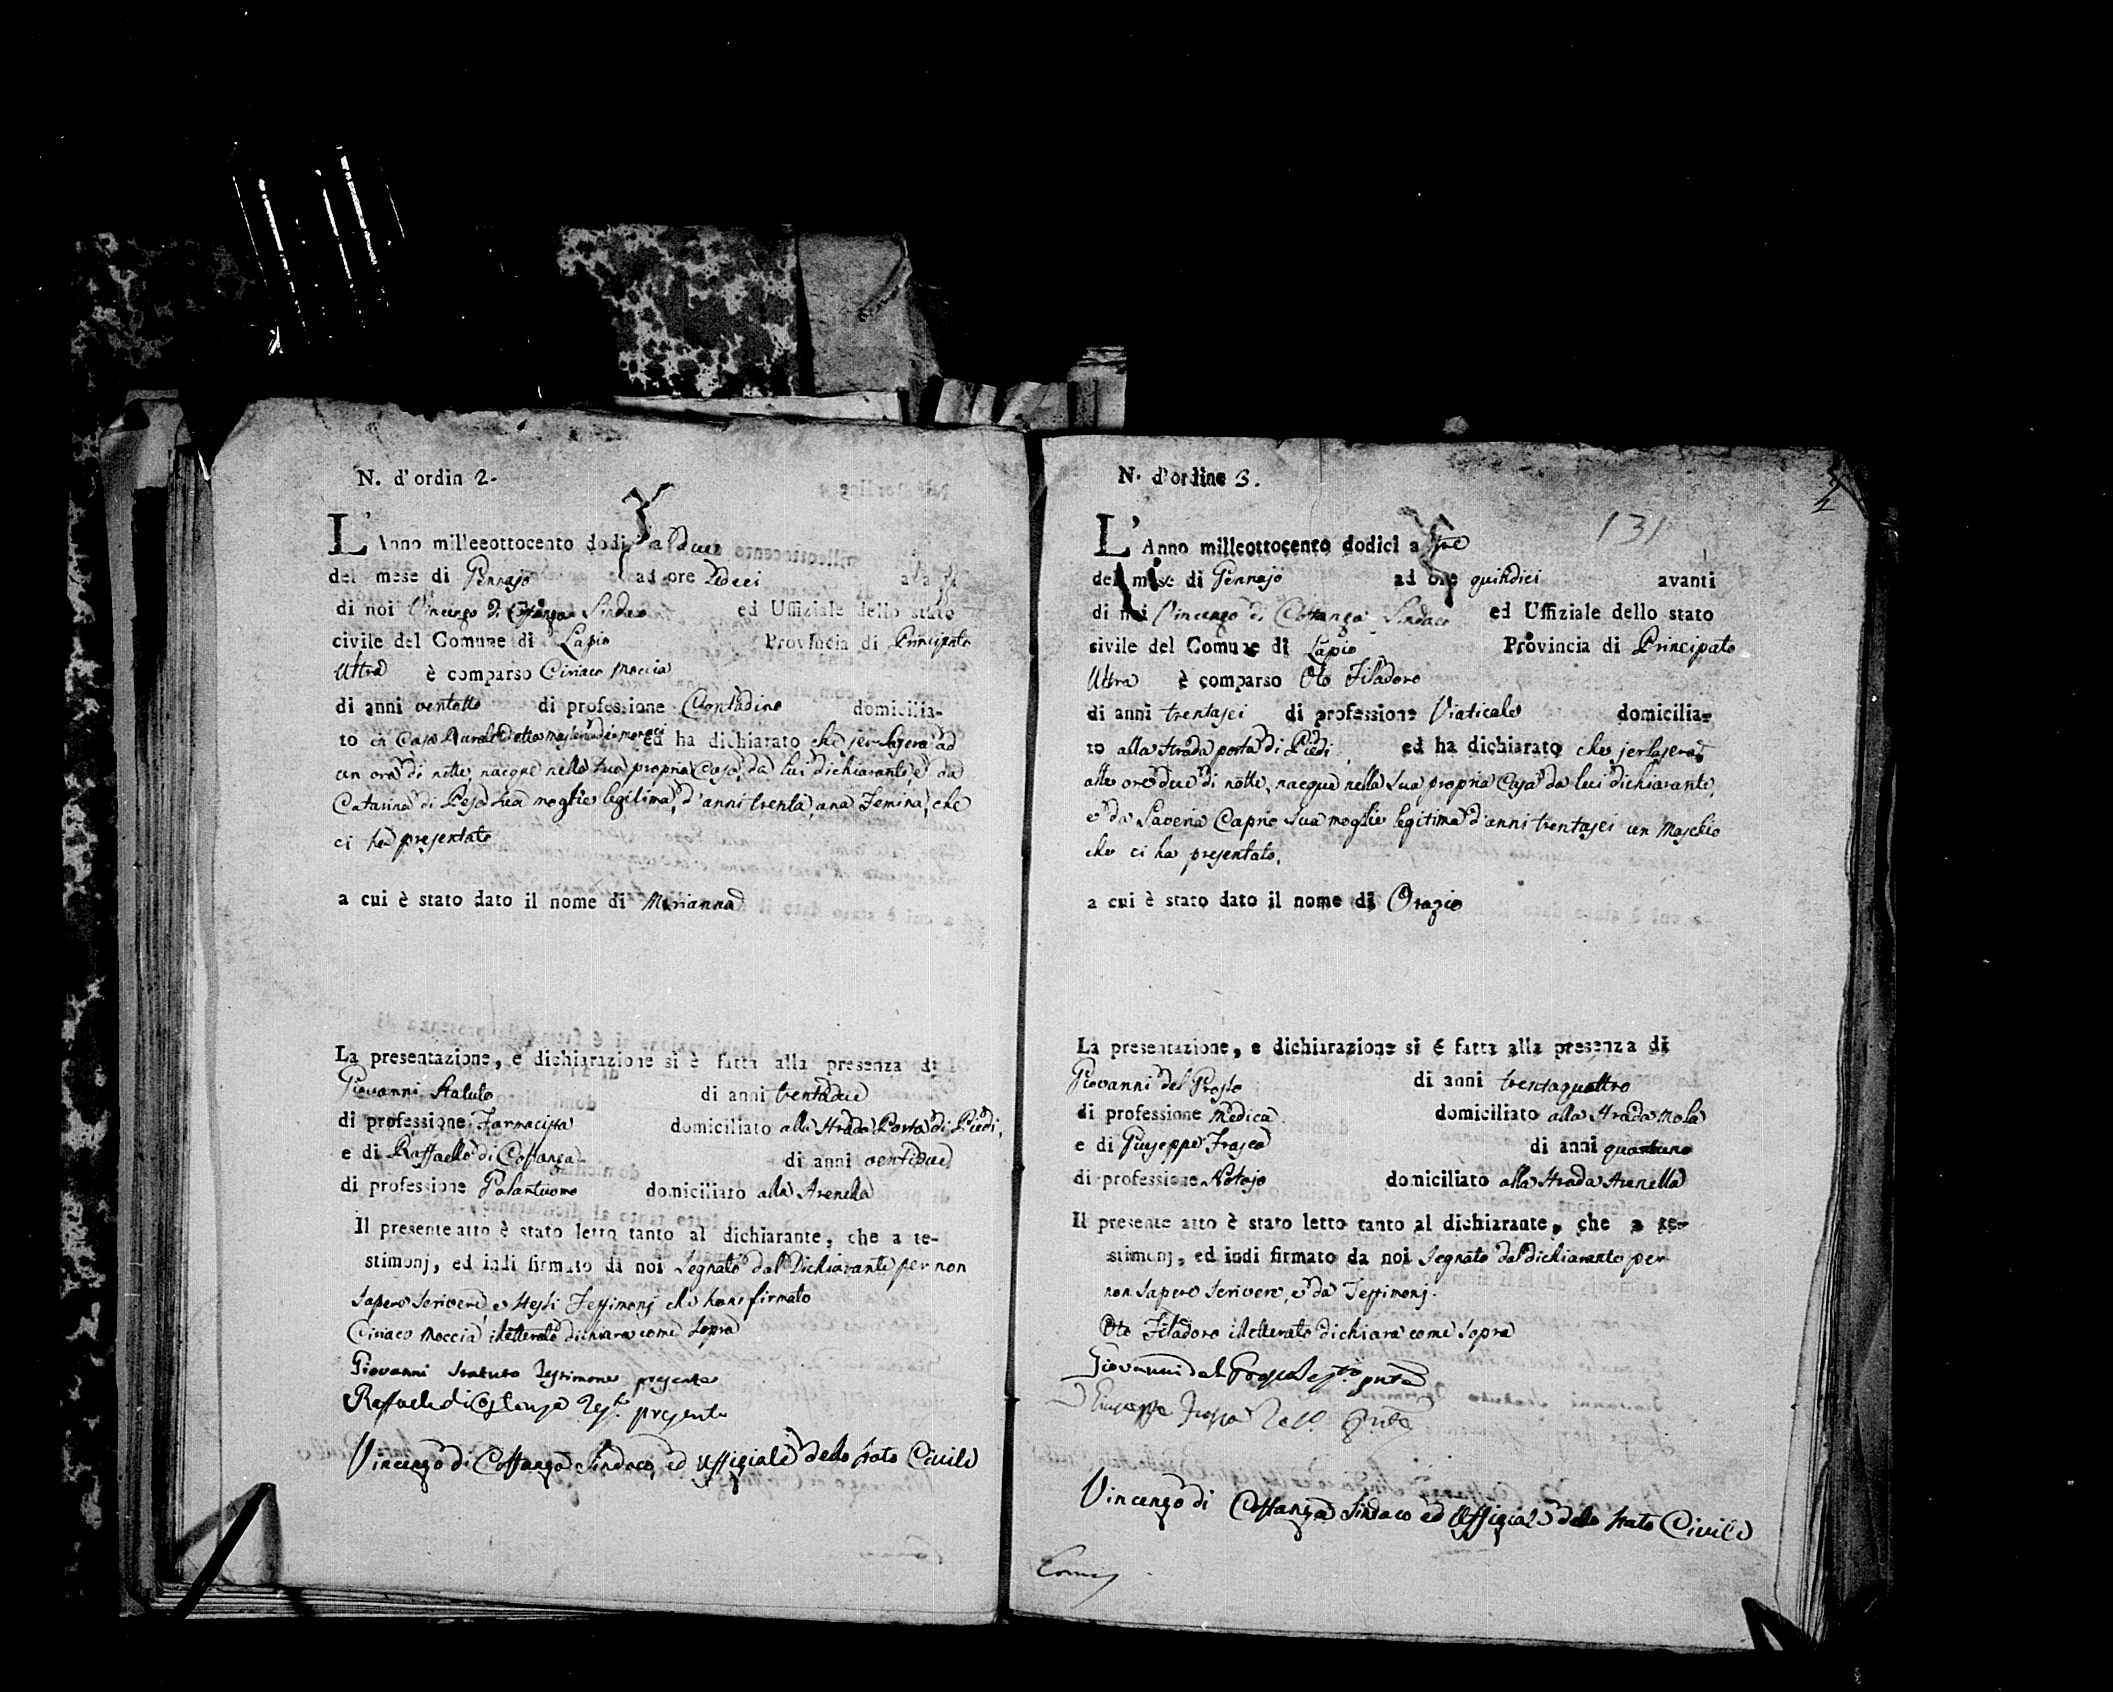 N. d'ordin 2.
L'Anno milleeottocento dodi a due
del mese di Gennajo ad ore dedeci
di noi Vincenzo di Costanzo Sindaco ed Uffiziale dello stato
civile del Comune di Lapio Provincia di Principato
Ultra è comparso Ciriaco Moccia
di anni ventotto di professione Contadino domicilia-
to in Casa Rurale detta ed ha dichiarato che jerlasera ad
un ora di notte, nacque nella sua propria Casa, da lui dichiarante, e da
Catarina di Peso sua moglie legitima, d'anni trenta, una Femina, che
ci ha presentato
a cui è stato dato il nome di Marianna
La presentazione, e dichiarazione si è fatta alla presenza di
Giovanni Statuto di anni trentadue
di professione Farmacista domiciliato alla Strada Porta di Piedi,
e di Raffaele di Costanza di anni ventidue
di professione Galantuomo domiciliato alla Arenella
Il presente atto è stato letto tanto al dichiarante, che a te-
stimonj, ed indi firmato di noi Segnato dal Dichiarante per non
sapere scrivere, e stessi Testimonj che hano firmato
Ciriaco Moccia illetterato dichiara come sopra
Giovanni Statuto Testimone presente
Raffaele di Costanza Test. presente
Vincenzo di Costanzo Sindaco, ed Uffiziale dello stato Civile
N. d'ordine 3.
131
L'Anno milleottocento dodici a tre
del mese di Gennajo ad ore quindici avanti
di noi Vincenzo di Costanzo Sindaco ed Uffiziale dello stato
civile del Comune di Lapio Provincia di Principato
Ultra è comparso Oto Filadoro
di anni trentasei di professione Viaticale domicilia-
to alla strada porta di Piedi, ed ha dichiarato che jerlasera
alle ore due di notte, nacque nella sua propria Casa da lui dichiarante,
e da Saveria Capno sua moglie legitima d'anni trentasei un Maschio
che ci ha presentato.
a cui è stato dato il nome di Orazio
La presentazione, e dichiarazione si è fatta alla presenza di
Giovanni del Grosso di anni trentaquattro
di professione Medica domiciliato alla Strada Mola
e di Giuseppe Frasca di anni
di professione Notajo domiciliato alla Strada Arenella
Il presente atto è stato letto tanto al dichiarante, che a te-
stimonj, ed indi firmato da noi Segnato dal dichiarante per
non sapere scrivere, e da Testimonj.
Oto Filadoro illetterato dichiara come sopra
Giovanni del Grosso
Giuseppe Frasca
Vincenzo di Costanza Sindaco ed Uffiziale dello stato Civile